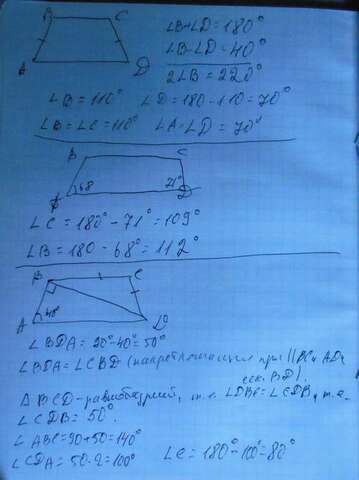 B C
A D
∠B+∠D=180°
∠B-∠D=40°
2∠B=220°
∠B=110° ∠D=180-110=70°
∠B=∠C=110° ∠A=∠D=70°
B C
68 71°
A D
∠C=180°-71°=109°
∠B=180-68°=112°
B C
A 40° D
∠BDA=90°-40°=50°
∠BDA=∠CBD (накрестлежащие при || BC и AD,
сек. BD).
Δ BCD-равнобедрий, т.к. ∠DBC=∠CDB, т.е.
∠CDB=50°.
∠ABC=90+50=140°
∠CDA=50·2=100° ∠C=180°-100°=80°